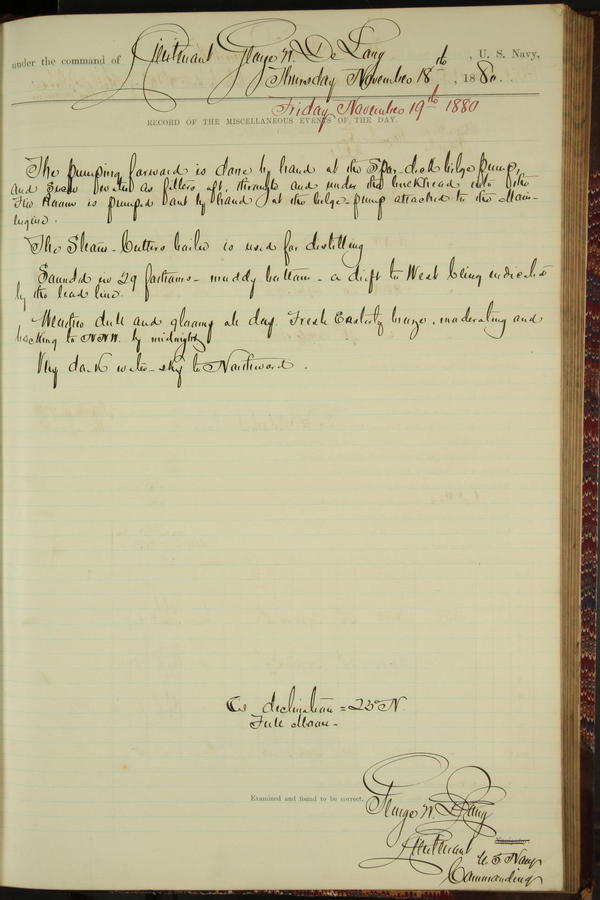 under the command of Lieutenant George W. De Long, U. S. Navy,
Thursday November 18th, 1880.
Friday November 19th 1880
RECORD OF THE MISCELLANEOUS EVENTS OF THE DAY.
The pumping forward is done by hand at the Spar-deck bilge pump,
and such water as filters aft, through and under the bulkhead into the
Fire Room is pumped out by hand at the bilge-pump attached to the Main-
engine.
The Steam-Cutters boiler is used for distilling
Sounded in 29 fathoms - muddy bottom - a drift to West being indicated
by the lead line.
Weather dull and gloomy all day. Fresh Easterly breeze, moderating and
backing to NNW. by midnight
Very dark water-sky to Northward.
declination = 25° N
Full Moon -
Examined and found to be correct.
George W. De Long
Lieutenant
Navigator.
U. S. Navy
Commanding